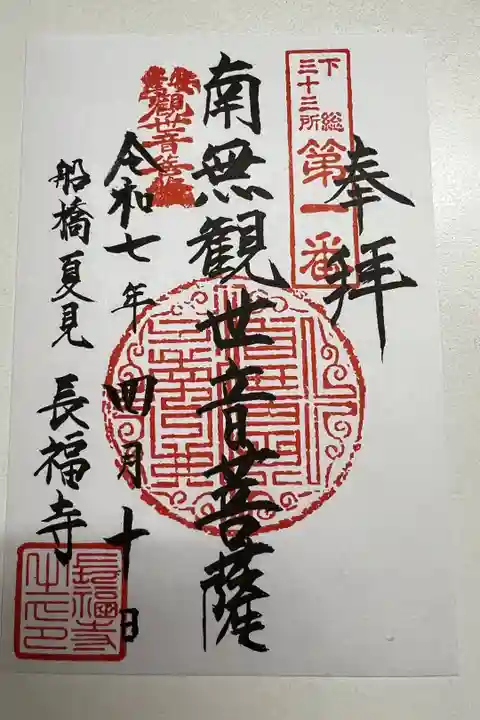 奉拝
下総三十三所
第一番
南無観世音菩薩
令和七年四月十日
船橋夏見 長福寺
長福寺之印